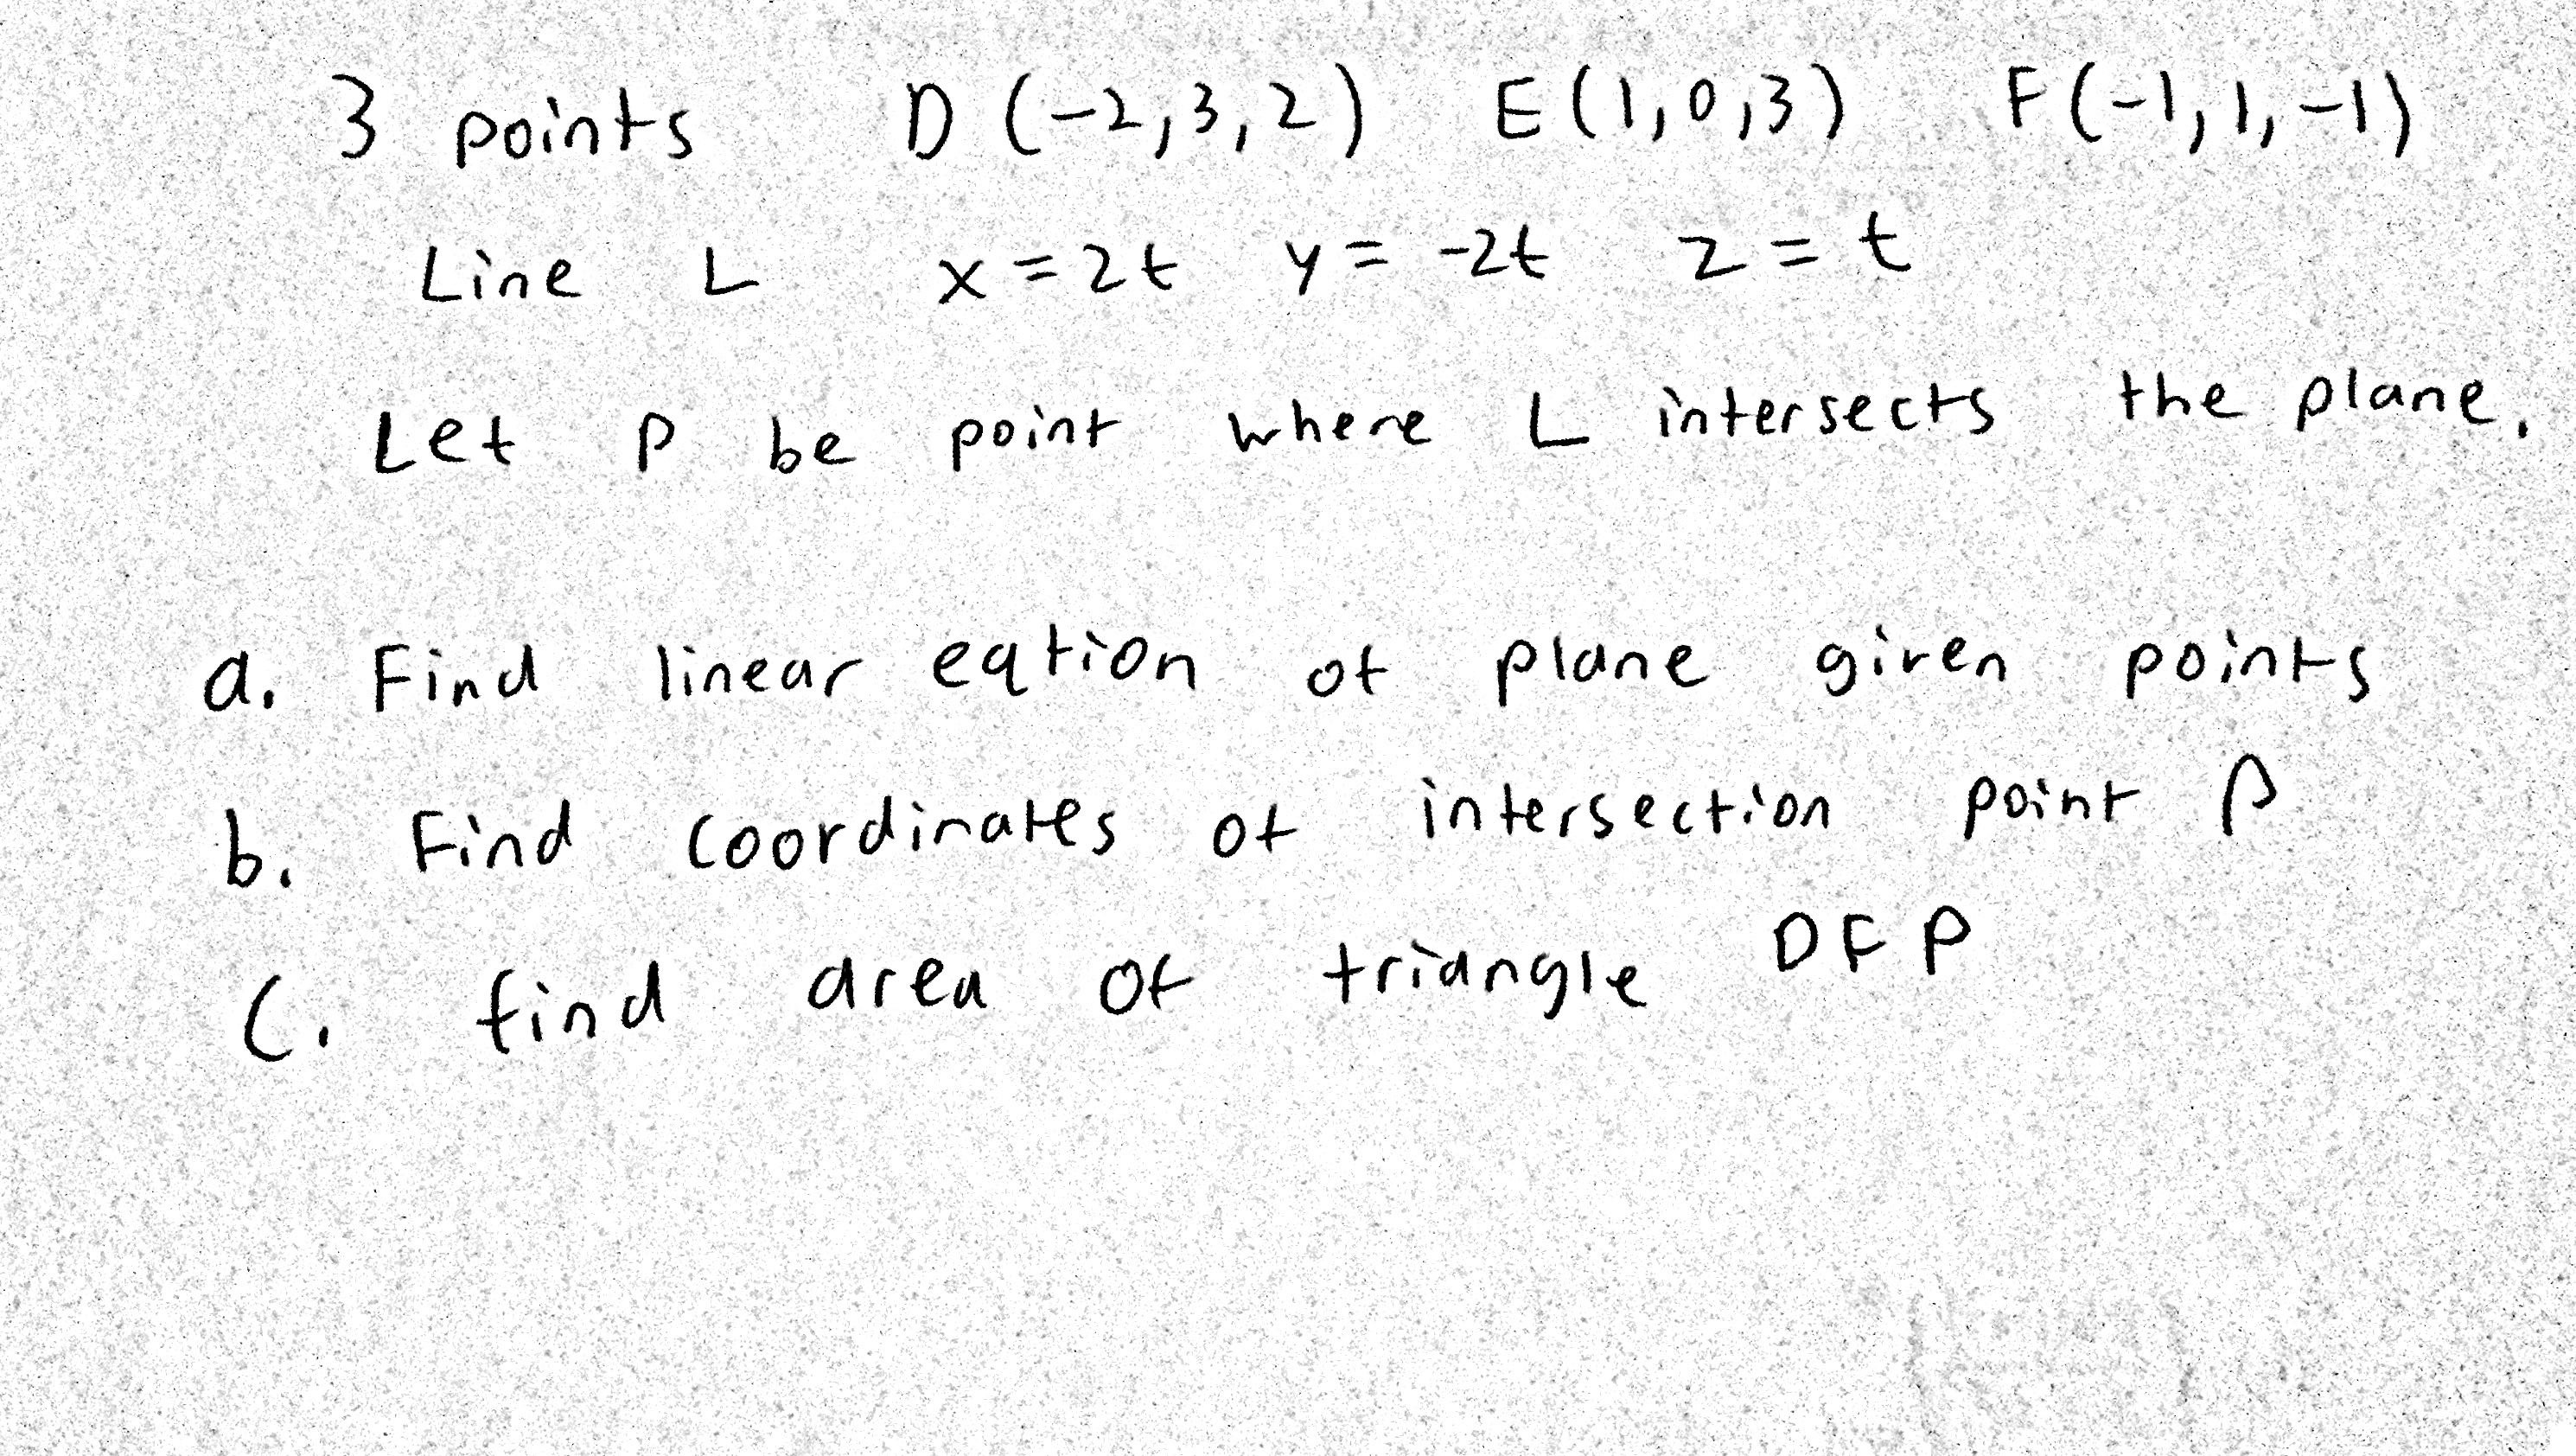 3 points D (-2,3,2) E(1,0,3) F(-1,1,-1)
Line L x=2t y= -2t z = t
Let P be point where L intersects the plane.
a. Find linear eqtion of plane given points
b. Find coordinates of intersection point P
C. find area of triangle DFP